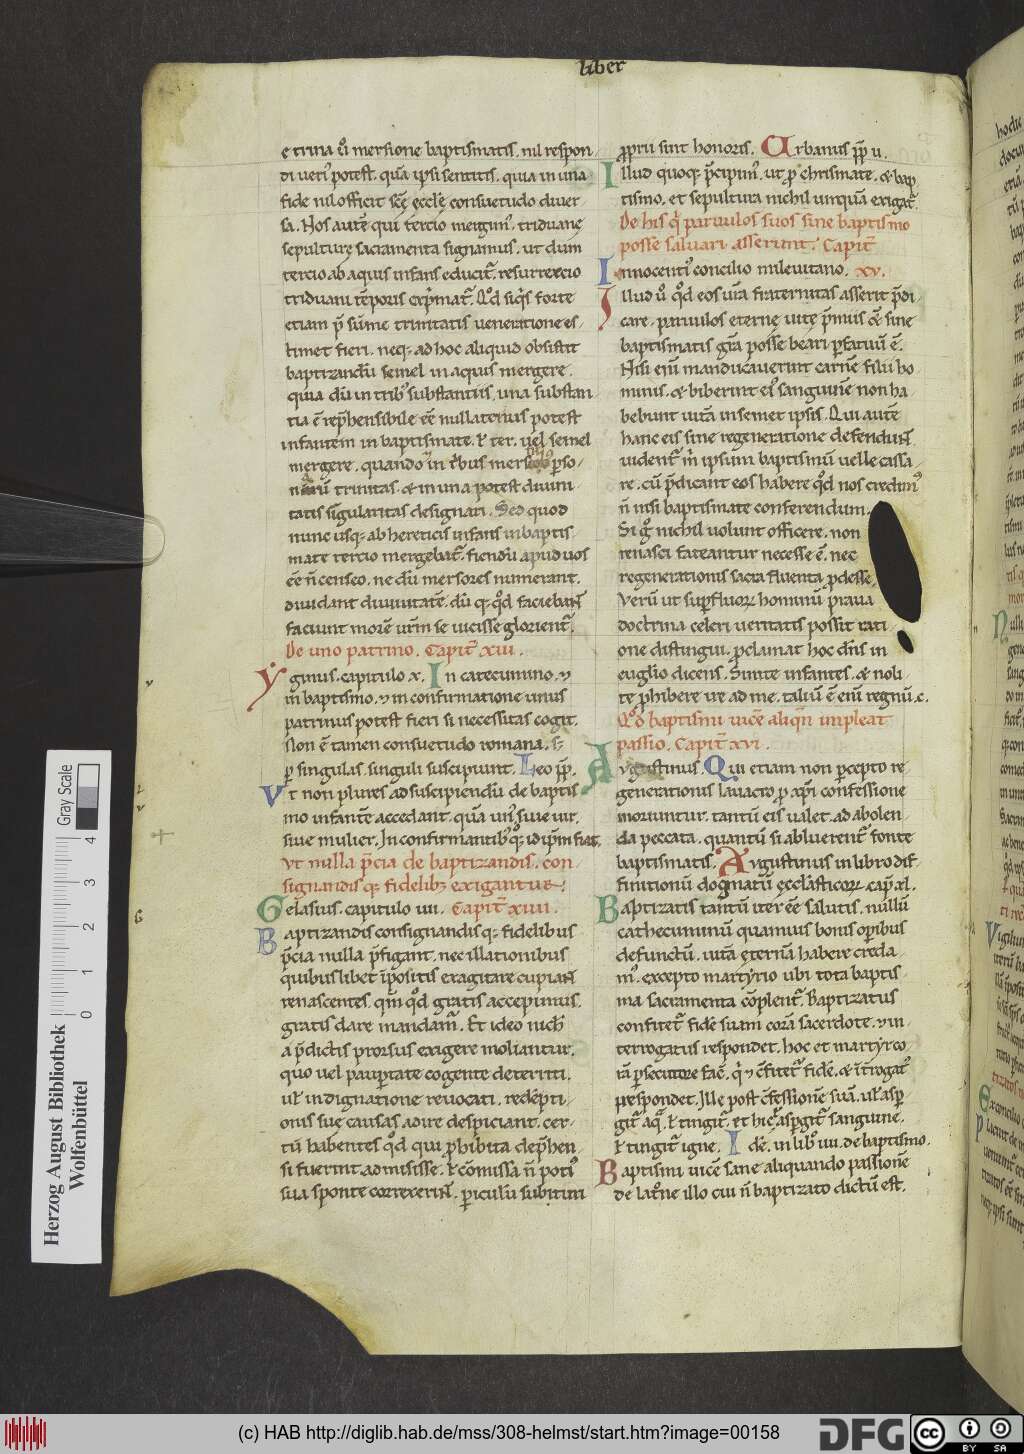 liber
ę trina ei mersione baptismatis. nil respon
di uerius potest. quā ipsi sentitis. quia in una
fide nil officit scę ęcclę consuetudo diuer
sa. Nos autē qui tercio mergim᷒. triduanę
sepulturę sacramenta signamus. ut dum
tercio ab aquis infans educit᷑. resurrexcio
triduani tēporis exp̄mat᷑. Qd̓ siqis forte
etiam p̄ sūme trinitatis ueneratione es
timet fieri. neq; ad hoc aliquid obsistit
baptizandū semel in aquis mergere.
quia dū in trib᷒ substantiis. una substan
tia ē rep̄hensibile eē nullatenus potest
infantem in baptismate. ł ter. uel semel
mergere. quando in tribus mers pso
narū trinitas. & in una potest diuini
tatis sigularitas designari. Sed quod
nunc usq; ab hereticis infans in baptis
mate tercio mergebat᷑. fiendū apud uos
eē n̄ censeo. ne dū mersores numerant.
diuidant diuinitatē. dū q; qd̓ faciebant᷑
faciunt morē urm̄ se uicisse glorient᷑.
De uno patrino. Capit᷑ xiii.
Yginus. capitulo x. In catecumino. ⁊
in baptismo. ⁊ in confirmatione unus
patrinus potest fieri si necessitas cogit.
Non ē tamen consuetudo romana. s;
p singulas. singuli suscipiunt. Leo pp̄.
Vt non plures ad suscipiendū de baptis
mo infantē accedant. quā un᷒. siue uir.
siue mulier. In confirmantib᷒ q; id ip̄m fiat.
Vt nulla p̄cia de baptizandis. con
signandis q; fidelib; exigantur.
Gelasius. capitulo uii. Capit᷑ xiiii.
Baptizandis consignandis q; fidelibus
p̄cia nulla p̄figant. nec illationibus
quibuslibet ip̄ositis exagitare cupiant
renascentes. qm̄ qd̓ gratis accepimus.
gratis dare mandam᷒. Et ideo nich̄
a p̄dictis prorsus exigere moliantur.
quo uel paup̄tate cogente deterriti.
ul̓ indignatione reuocati. redēpti
onis suę causas adire despiciant. cer
tū habentes qd̓ qui p̄hibita dep̄hen
si fuerint admisisse. ł cōmissa n̄ poti᷒
sua sponte correxerint. piculū subituri
pprii sunt honoris. Urbanus pp̄ ii.
Illud quoq; p̄cipim᷒. ut p chrismate. & bap
tismo. et sepultura nichil unquā exigat᷑.
De his q̓ paruulos suos sine baptismo
posse saluari asserunt. Capit᷑
Innocenti᷒ concilio mileuitano. xv.
Illud u̓ qd̓ eos ur̄a fraternitas asserit p̄di
care. paruulos eternę uitę p̄miis & sine
baptismatis gr̄a posse beari pfatuū ē.
Nisi eni᷒ manducauerint carnē filii ho
minis. & biberint ei᷒ sanguinē non ha
bebunt uitā in semet ipsis. Qui autē
hanc eis sine regeneratione defendunt᷑
uident᷑ m̓ ipsum baptismū uelle cassa
re. cū p̄dicant eos habere qd̓ nos credim᷒
n̄ nisi baptismate conferendum.
Si g̊ nichil uolunt officere. non
renasci fateantur necesse ē. nec
regenerationis sacra fluenta p̄desse.
Verū ut supfluoꝝ hominū praua
doctrina celeri ueritatis possit rati
one distingui. p̄clamat hoc dn̄s in
euglio dicens. Sinite infantes. & noli
te p̄hibere ue ad me. taliū ē eni᷒ regnū. c.
Qd̓ baptismi uicē aliqn̄ impleat
passio. Capit᷑ xvi.
Augustinus. Qui etiam non pcepto re
generationis lauacro. p xp̄i confessione
moriuntur. tantū eis ualet. ad abolen
da peccata. quantū si abluerent᷑ fonte
baptismatis. Augustinus in libro dif
finitionū dogmatū ecclasticoꝝ. cap̄. xl.
Baptizatis tantū iter eē salutis. nullū
cathecuminū quamuis bonis opibus
defunctū. uitā eternā habere creda
m᷒. excepto martyrio ubi tota baptis
ma sacramenta cōplent᷑. Baptizatus
confitet᷑ fidē suam corā sacerdote. ⁊ in
terrogatus respondet. hoc et martyr co
rā psecutore fac̄. q̓ ⁊ cfitet᷑ fidē. & īrogat᷒
respondet. Ille post cfessionē suā. ul̓ asp
git᷑ aq̓. ł tingit᷑. et hic aspgit᷑ sanguine.
ł tingit᷑ igne. Idē. in lib᷒ iiii. de baptismo.
Baptismi uicē sane aliquando passionē
de latr̄ne illo cui n̄ baptizato dictū est.
Herzog August Bibliothek
Wolfenbüttel
Gray Scale
0 1 2 3 4
(c) HAB http://diglib.hab.de/mss/308-helmst/start.htm?image=00158
DFG
cc
BY SA